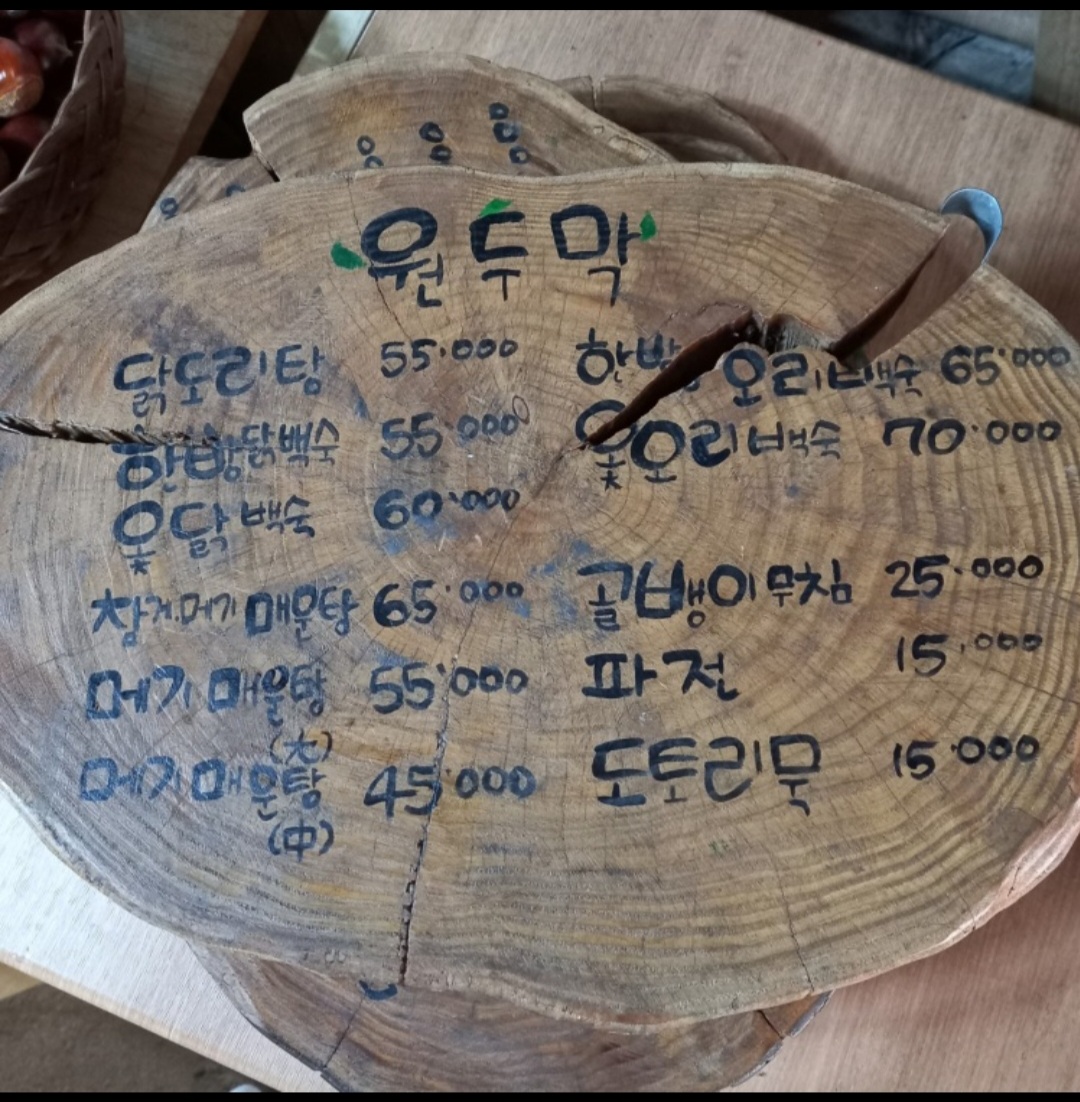 원두막
닭도리탕 55,000
한방닭백숙 55,000
옻닭백숙 60,000
참게.메기매운탕 65,000
메기매운탕 55,000
(大)
메기매운탕 45,000
(中)
한방오리백숙 65,000
옻오리백숙 70,000
골뱅이무침 25,000
파전 15,000
도토리묵 15,000